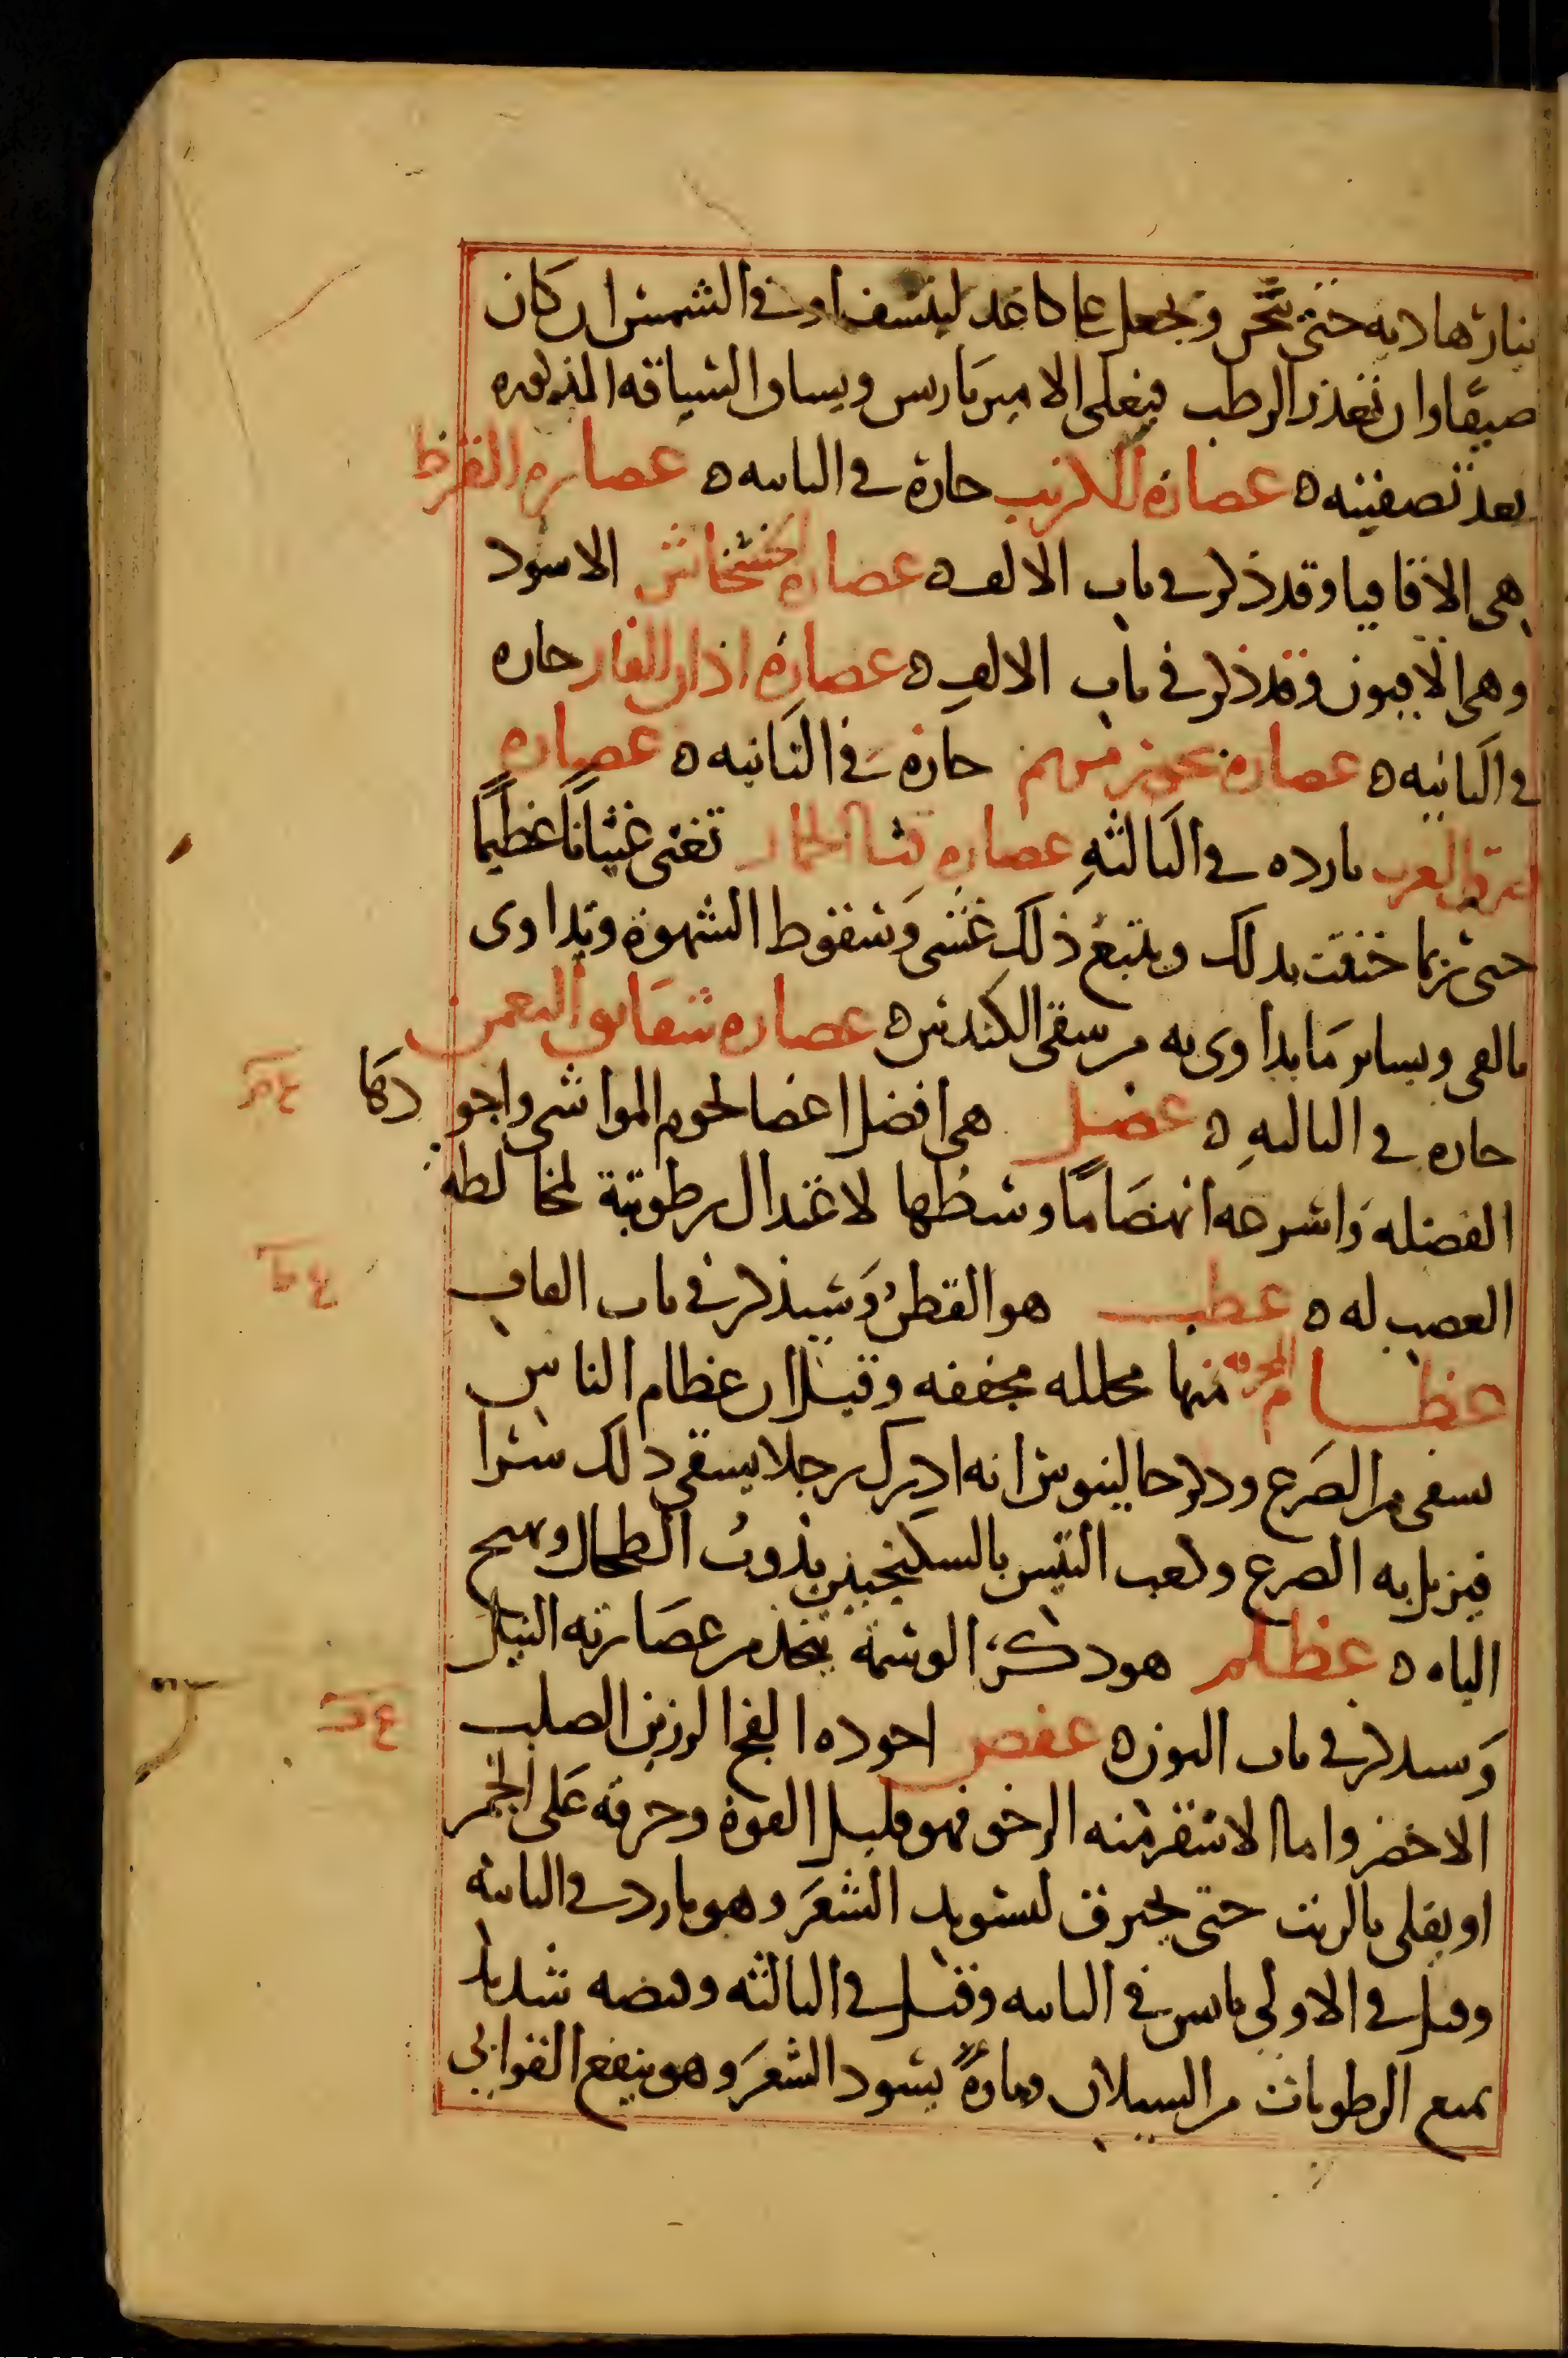 بنار هاديه حتى تثخن وتجعل على كاغد لينشف او في الشمس ان كان
صيفا وان تعذر الرطب فيغلى الامير باريس ويساق السياقه المذكوره
بعد تصفيته ه عصارة الكرنب حارة في الثانيه ه عصارة القرظ
هي الاقاقيا وقد ذكر في باب الالف ه عصارة الخشخاش الاسود
وهي الافيون وقد ذكر في باب الالف ه عصارة اذان الفار حاره
في الثانيه ه عصارة بخور مريم حارة في الثانيه ه عصارة
بارده في الثالثه عصارة قثا الحمار تغثى غثيانا عظيما
حتى ربما خنقت بذلك ويتبع ذلك غشى وسقوط الشهوة ويداوى
بالقى وبساير ما يداوى به من سقى الكندس ه عصارة شقايق النعمن
حاره في الثالثه ه عضل هي افضل اعضا لحوم المواشى واجودها
الفضله واسرعه انهضاما وسطها لاعتدال رطوبته لمخالطة
العصب له ه عطب هو القطن وسيذكر في باب القاف
عظام المحرقه منها محلله مجففه وقيل ان عظام الناس
يسقى من الصرع وذكر جالينوس انه ادرك رجلا يسقى ذلك سرا
فيزيل به الصرع وكعب التيس بالسكنجبين يذوب الطحال ويهيج
الباه ه عظلم هو ذكر الوشمة يتخذ من عصارته النيل
وسيذكر في باب النون ه عفص اجوده الفج الرزين الصلب
الاخضر واما الاشقر منه الرخو فهو قليل القوة وحرقه على الجمر
او يقلى بالزيت حتى يحترق لتسويد الشعر وهو بارد في الثانيه
وقيل في الاولى يابس في الثانيه وقيل في الثالثه وقبضه شديد
يمنع الرطوبات من السيلان وماؤه يسود الشعر وهو ينفع القوابى
ع ض
ع ط
ع ف